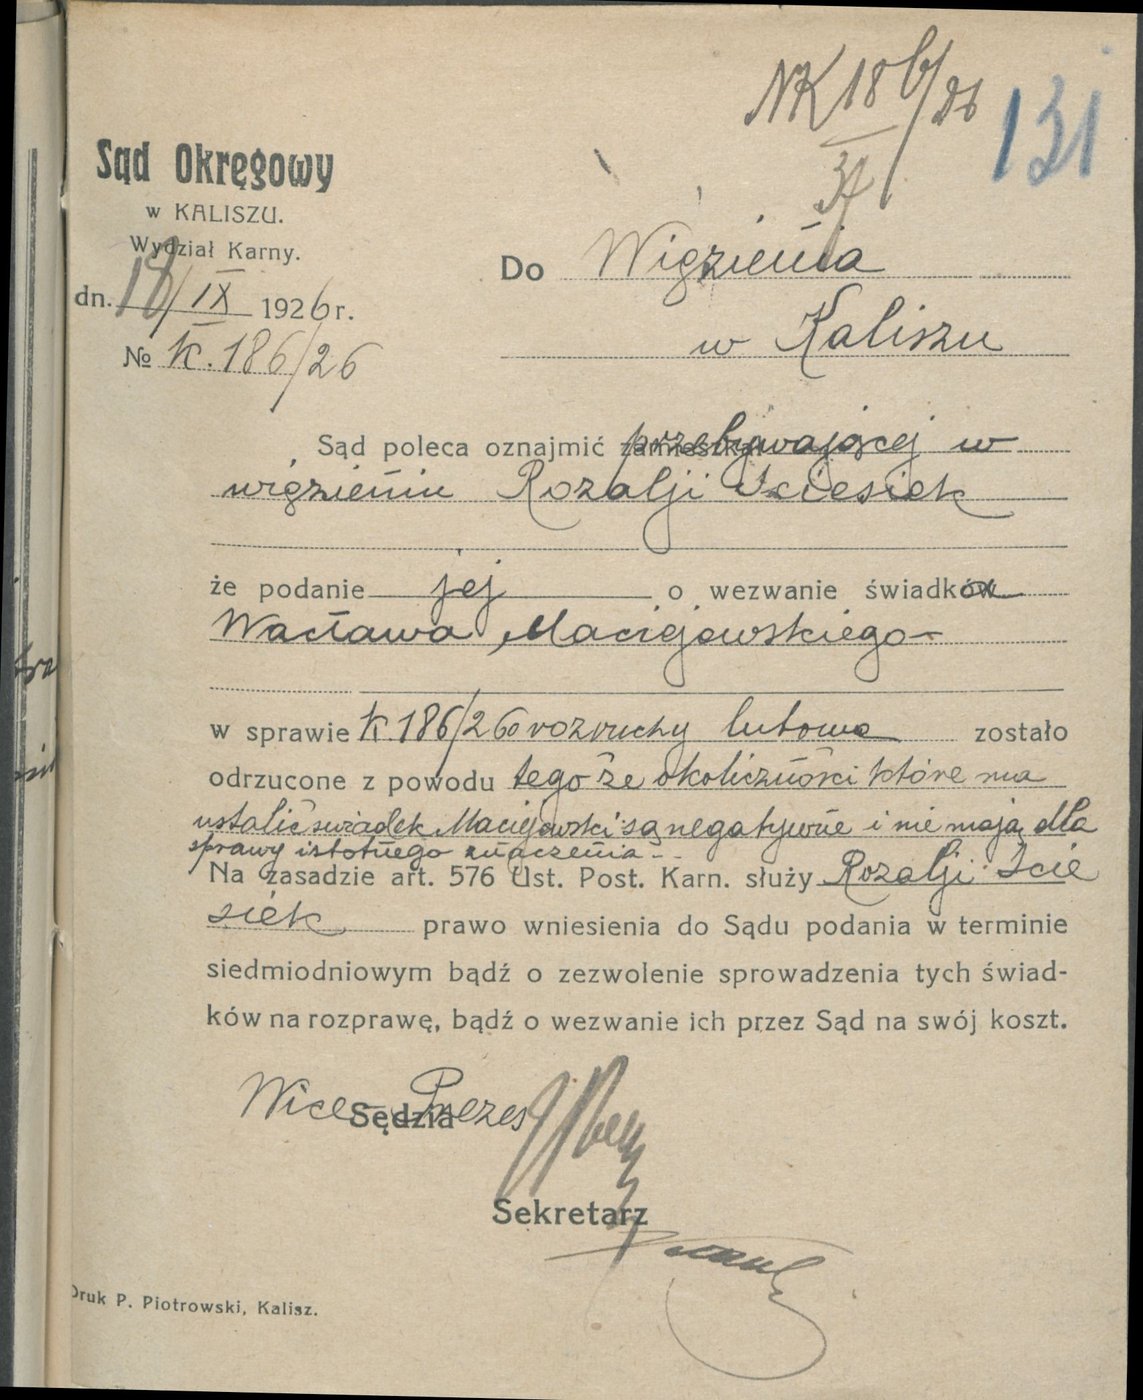 NK 186/26 131
37
Sąd Okręgowy
w KALISZU.
Wydział Karny.
dn. 18/IX 1926 r.
№ K. 186/26
Do Więzienia
w Kaliszu
Sąd poleca oznajmić przebywającej w
więzieniu Rozalji Iciesiek
że podanie jej o wezwanie świadka
Wacława Maciejowskiego
w sprawie K 186/26 o rozruchy lutowe zostało
odrzucone z powodu tego że okoliczności które ma
ustalić świadek Maciejowski są negatywne i nie mają dla
sprawy istotnego znaczenia
Na zasadzie art. 576 Ust. Post. Karn. służy Rozalji Icie
siek prawo wniesienia do Sądu podania w terminie
siedmiodniowym bądź o zezwolenie sprowadzenia tych świad-
ków na rozprawę, bądź o wezwanie ich przez Sąd na swój koszt.
Wice-Prezes
Sędzia
Sekretarz
Druk P. Piotrowski, Kalisz.